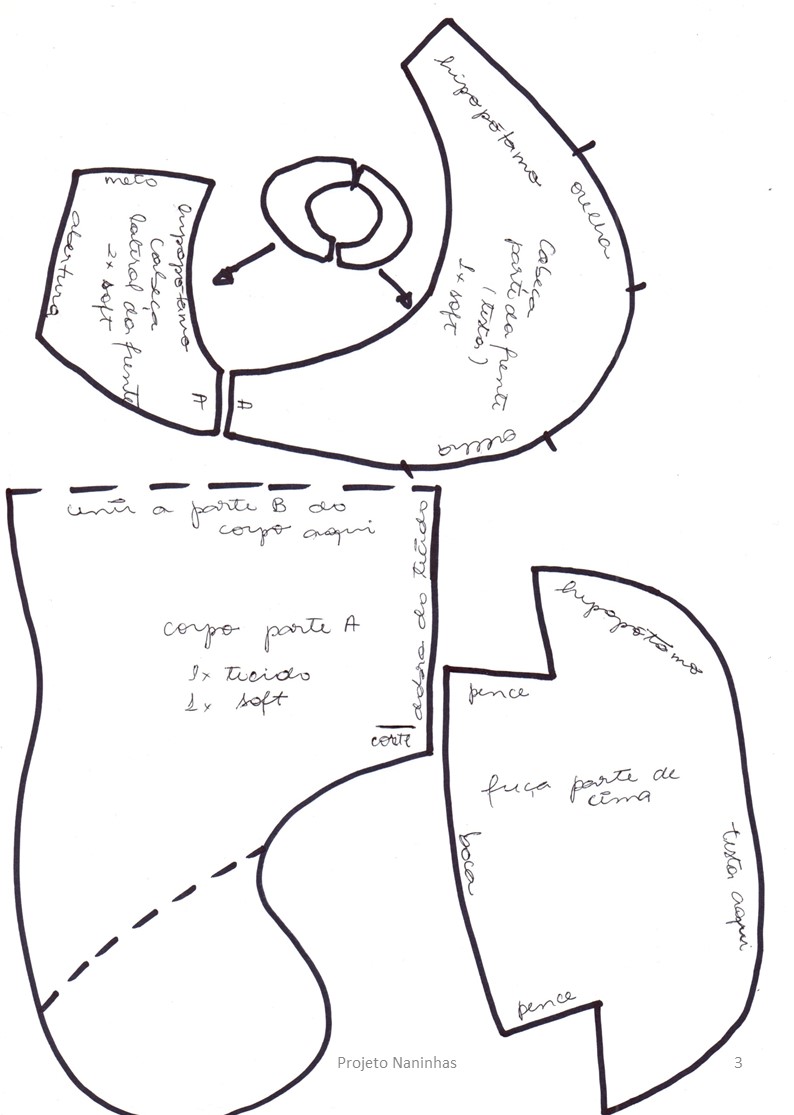 hipopótamo
orelha
Cabeça
parte da frente
(testa)
1x soft
orelha
A
meio
hipopótamo
cabeça
lateral da frente
2x soft
abertura
A
unir a parte B do
corpo aqui
dobra do tecido
corpo parte A
1x tecido
1x soft
corte
hipopótamo
pence
fuça parte de
cima
boca
testa aqui
pence
Projeto Naninhas
3